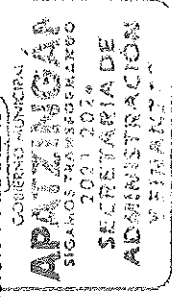 GOBIERNO MUNICIPAL
APATZINGÁN
SIGAMOS TRANSFORMANDO
2021 2024
SECRETARIA DE
ADMINISTRACIÓN
Y FINANZAS